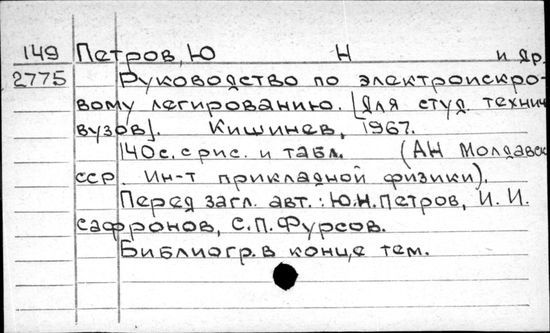 149 Петров, Ю Н и др.
2775 Руководство по электроискро-
вому легированию. [Для студ. технич
вузов]. Кишинев, 1967.
140 с. с рис. и табл. (АН Молдавск
сср. Ин-т прикладной физики).
Перед загл. авт.: Ю.Н. Петров, И. И.
Сафронов, С.П. Фурсов.
Библиогр. в конце тем.